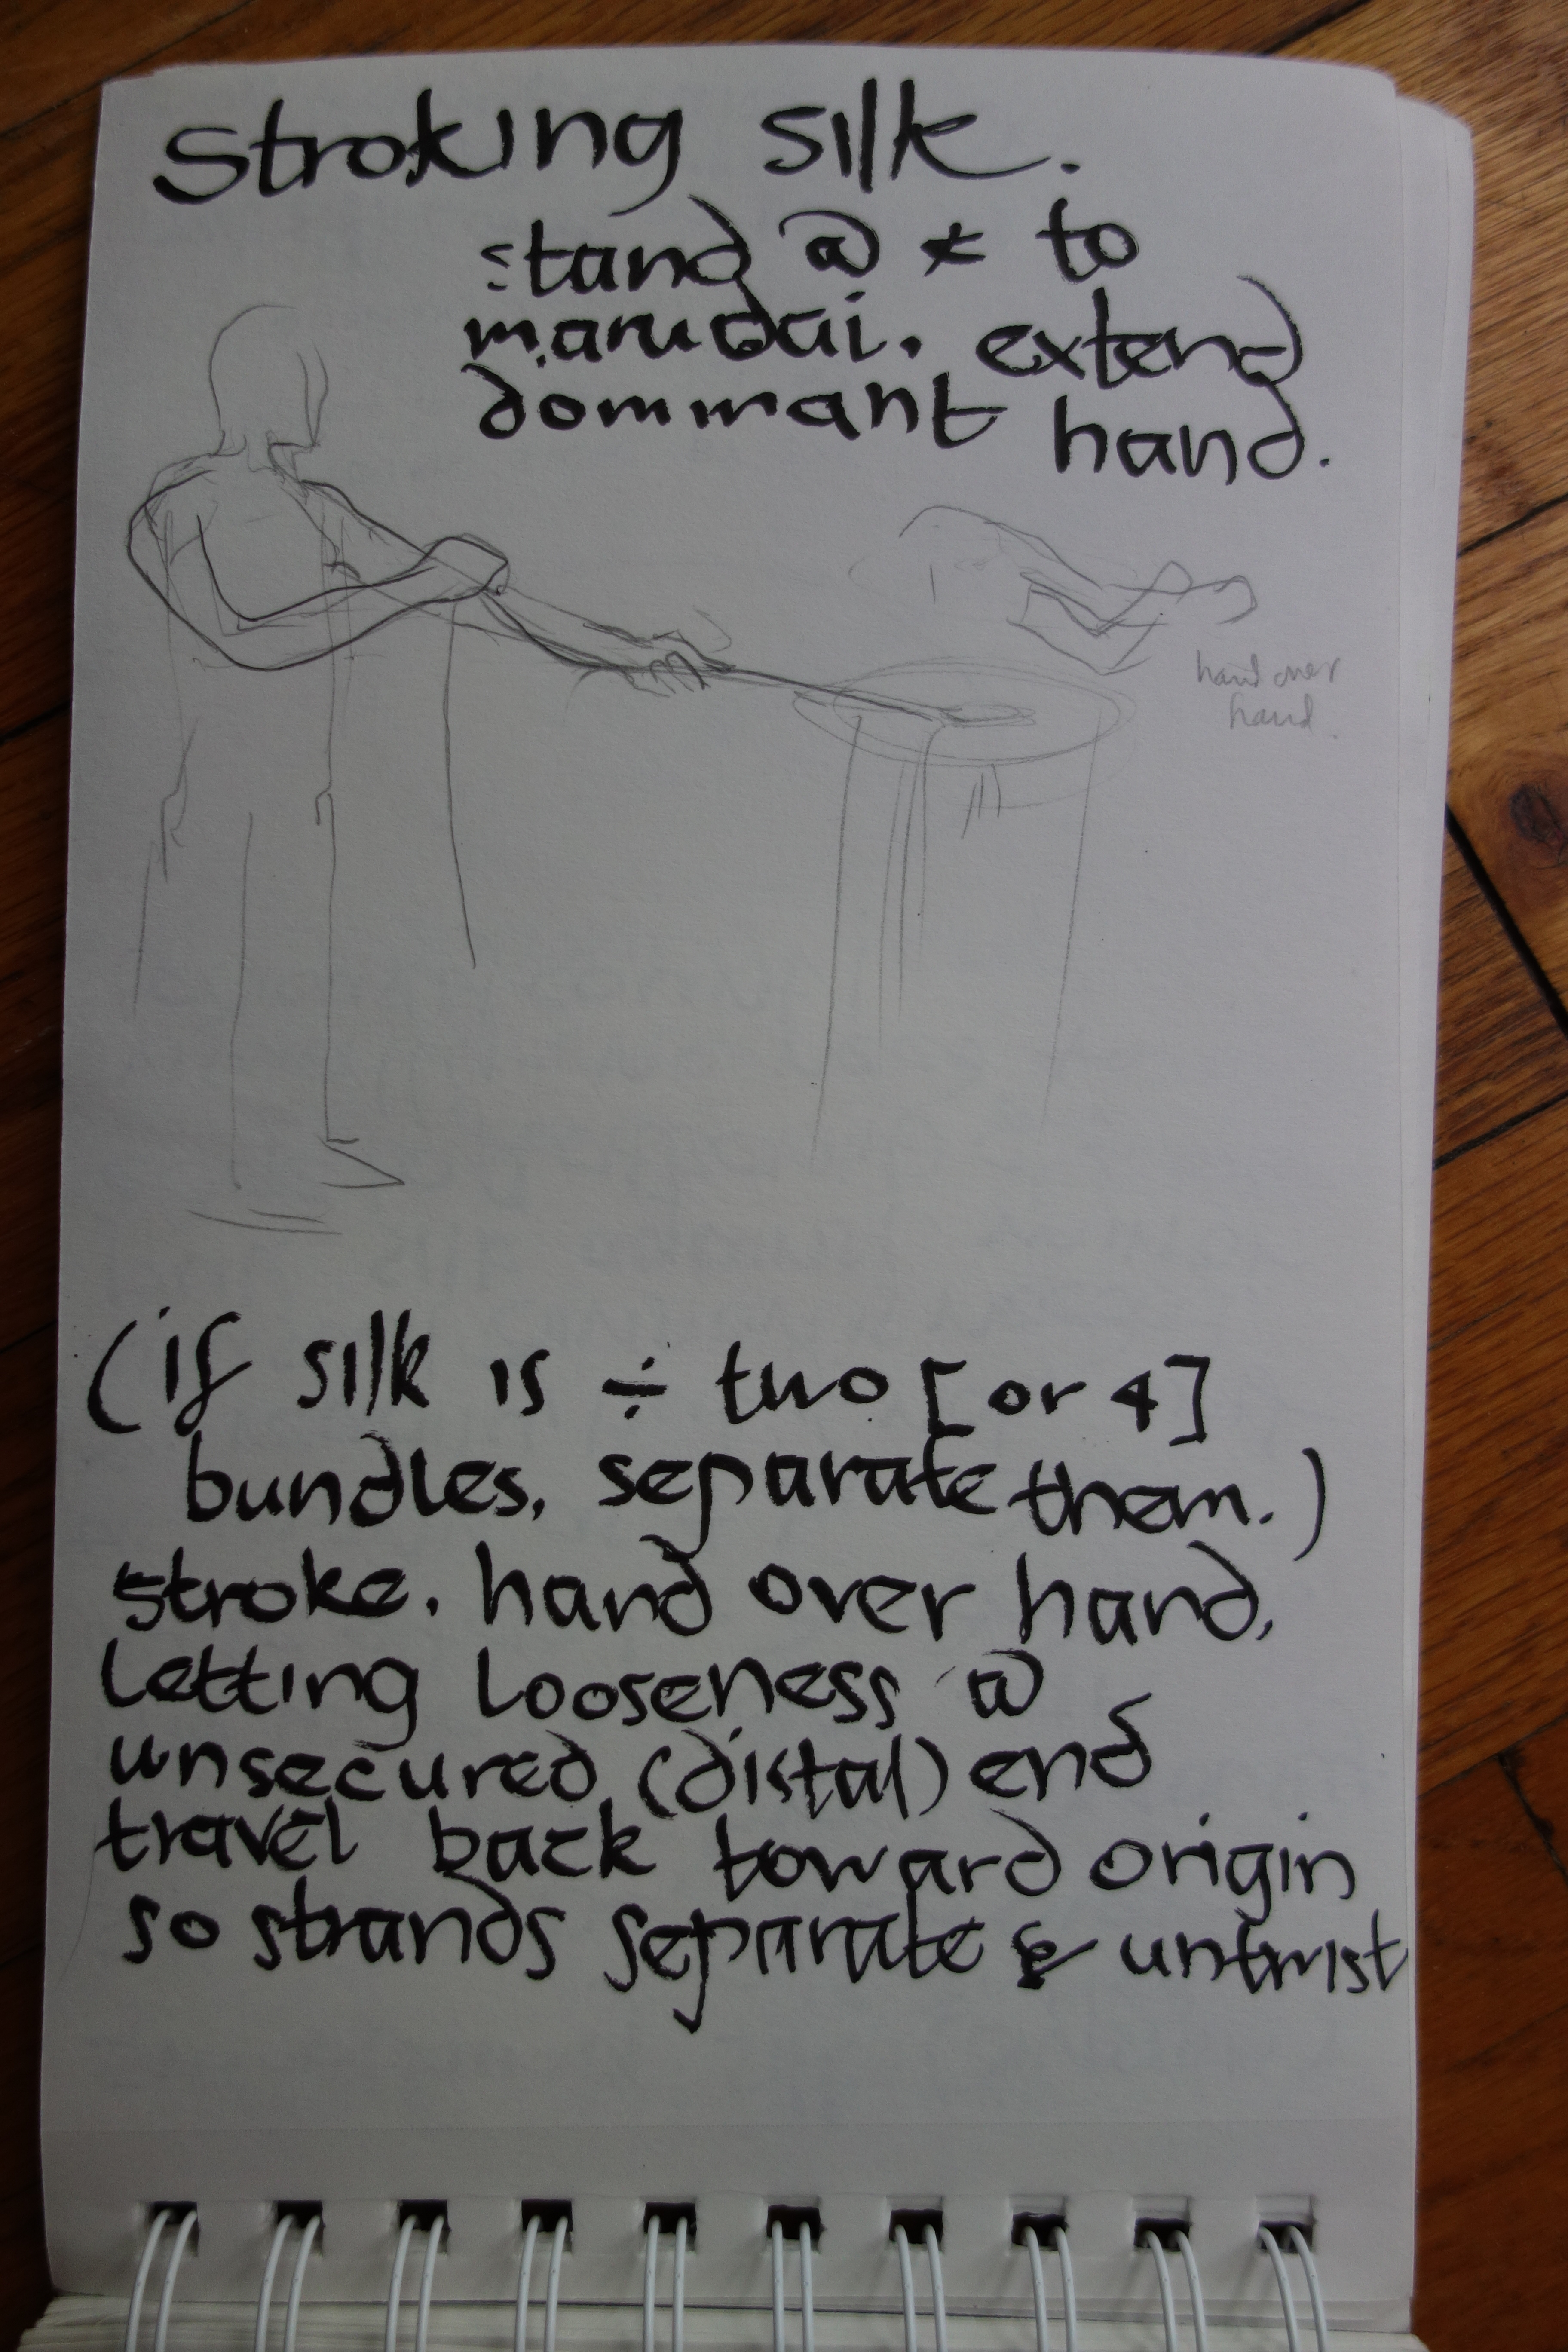 Stroking silk.
stand @ * to
marudai. extend
dominant hand.
hand over
hand.
(if silk is ÷ two [or 4]
bundles, separate them.)
stroke, hand over hand,
letting looseness @
unsecured (distal) end
travel back toward origin
so strands separate & untwist